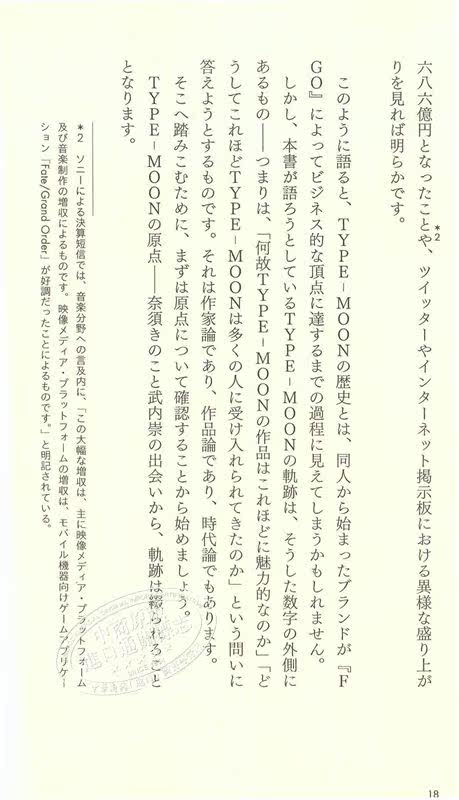 六八六億円となったことや、ツイッターやインターネット掲示板における異様な盛り上が
*2
りを見れば明らかです。
このように語ると、TYPE-MOONの歴史とは、同人から始まったブランドが『F
GO』によってビジネス的な頂点に達するまでの過程に見えてしまうかもしれません。
しかし、本書が語ろうとしているTYPE-MOONの軌跡は、そうした数字の外側に
あるもの――つまりは、「何故TYPE-MOONの作品はこれほどに魅力的なのか」「ど
うしてこれほどTYPE-MOONは多くの人に受け入れられてきたのか」という問いに
答えようとするものです。それは作家論であり、作品論であり、時代論でもあります。
そこへ踏みこむために、まずは原点について確認することから始めましょう。
TYPE-MOONの原点――奈須きのこと武内崇の出会いから、軌跡は綴られること
となります。
*2 ソニーによる決算短信では、音楽分野への言及内に、「この大幅な増収は、主に映像メディア・プラットフォーム
及び音楽制作の増収によるものです。映像メディア・プラットフォームの増収は、モバイル機器向けゲームアプリケー
ション「Fate/Grand Order」が好調だったことによるものです。」と明記されている。
18